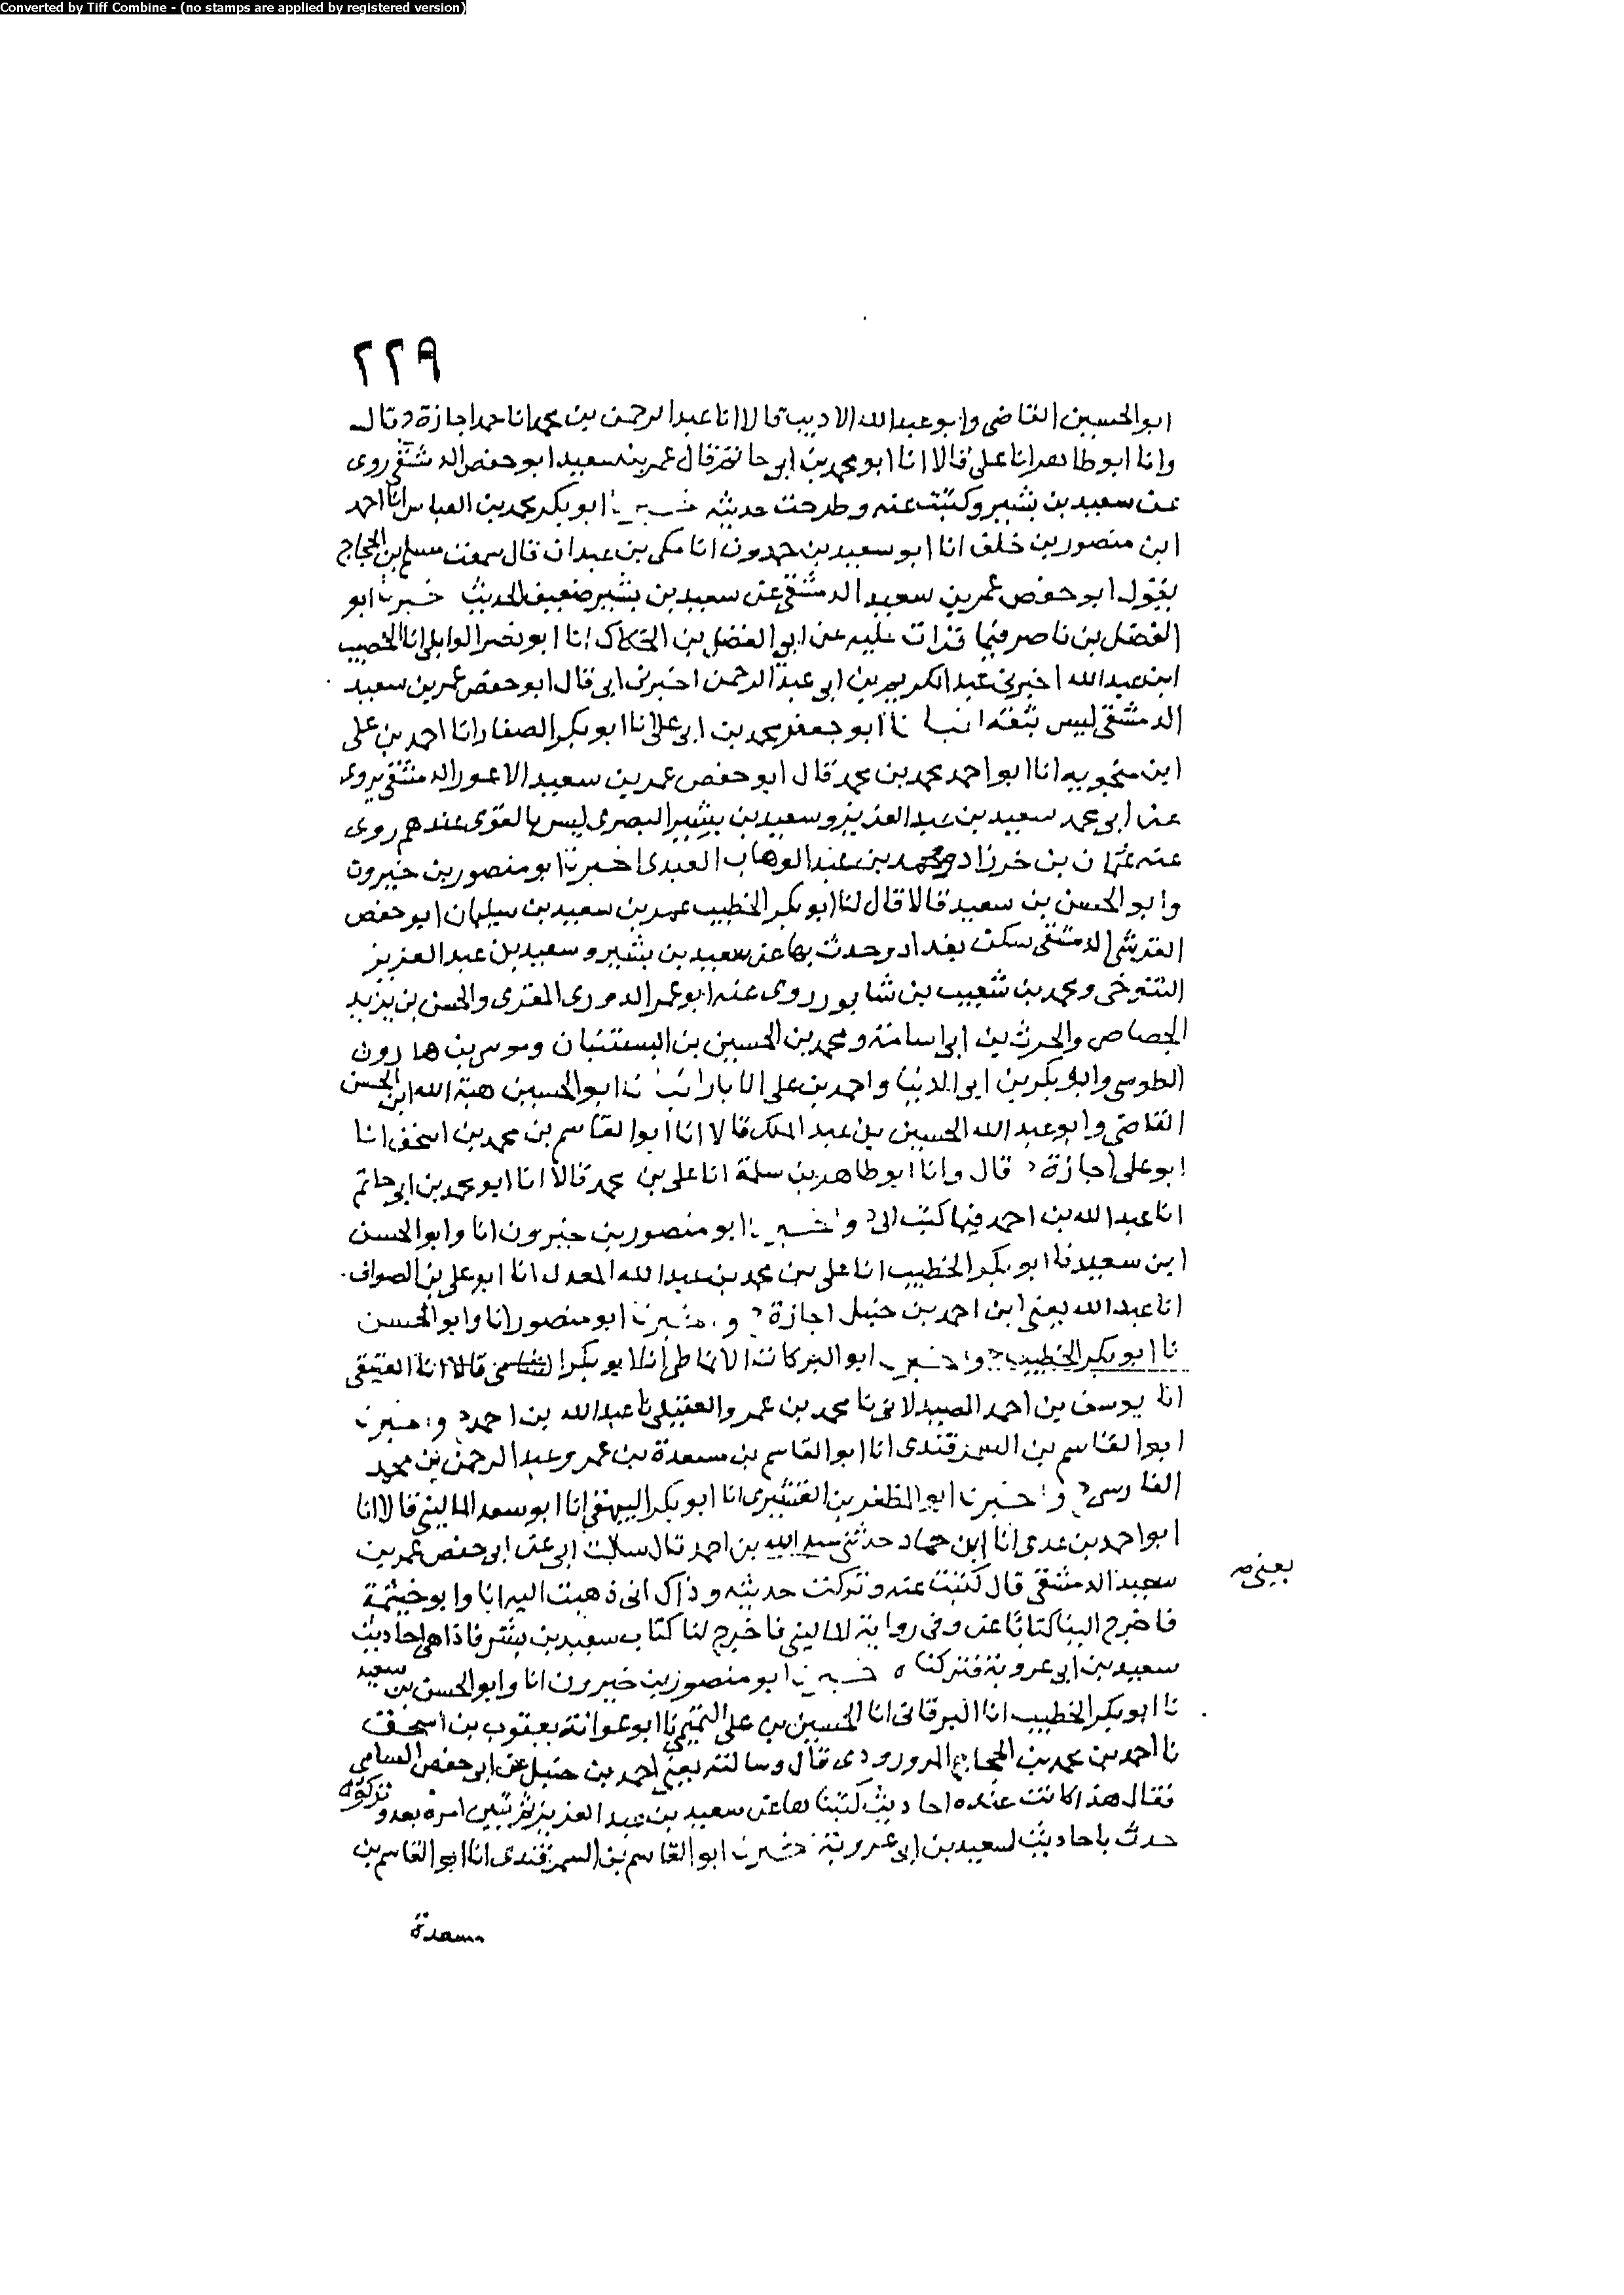 Converted by Tiff Combine - (no stamps are applied by registered version)
٢٢٩
ابو الحسين القاضى وابو عبد الله الاديب قالا انا عبد الرحمن بن محمد انا حمد اجازة ح قال
وانا ابو طاهر انا على قالا انا ابو محمد بن ابى حاتم قال عمر بن سعيد ابو حفص الدمشقى روى
عن سعيد بن بشير وكتبت عنه وطرحت حديثه خبرنا ابو بكر محمد بن العباس انا احمد
ابن منصور بن خلف انا ابو سعيد بن حمدون انا مكى بن عبدان قال سمعت مسلم بن الحجاج
يقول ابو حفص عمر بن سعيد الدمشقى عن سعيد بن بشير ضعيف الحديث خبرنا ابو
الفضل بن ناصر فيما قرات عليه عن ابى الفضل بن الحكاك انا ابو نصر الوايلى انا الخصيب
ابن عبد الله اخبرنى عبد الكريم بن ابى عبد الرحمن اخبرنى ابى قال ابو حفص عمر بن سعيد
الدمشقى ليس بثقة انبانا ابو جعفر محمد بن ابى على انا ابو بكر الصفار انا احمد بن على
ابن منجويه انا ابو احمد محمد بن محمد قال ابو حفص عمر بن سعيد الاعور الدمشقى يروى
عن ابى محمد سعيد بن عبد العزيز وسعيد بن بشير البصرى ليس بالقوى عندهم روى
عنه عثمان بن خرزاد ومحمد بن عبد الوهاب العبدى اخبرنا ابو منصور بن خيرون
وابو الحسن بن سعيد قالا قال لنا ابو بكر الخطيب عمر بن سعيد بن سليمان ابو حفص
القرشى الدمشقى سكن بغداد وحدث بها عن سعيد بن بشير وسعيد بن عبد العزيز
التنوخى ومحمد بن شعيب بن شابور روى عنه ابو عمر الدورى المقرى والحسن بن يزيد
الجصاص والحرث بن ابى اسامة ومحمد بن الحسين بن البستنبان وموسى بن هارون
الطوسى وابو بكر بن ابى الدنيا واحمد بن على الابار انبانا ابو الحسين هبة الله ابن الحسن
القاضى وابو عبد الله الحسين بن عبد الملك قالا انا ابو القاسم بن محمد بن اسحق انا
ابو على اجازة ح قال وانا ابو طاهر بن سلمة انا على بن محمد قالا انا ابو محمد بن ابى حاتم
انا عبد الله بن احمد فيما كتب الى ح واخبرنا ابو منصور بن خيرون انا وابو الحسن
ابن سعيد نا ابو بكر الخطيب انا على بن محمد بن عبد الله المعدل انا ابو على بن الصواف
انا عبد الله يعنى ابن احمد بن حنبل اجازة ح واخبرنا ابو منصور انا وابو الحسن
نا ابو بكر الخطيب ح واخبرنا ابو البركات الانماطى انا ابو بكر الشامى قالا انا العتيقى
انا يوسف بن احمد الصيدلانى نا محمد بن عمرو العقيلى نا عبد الله بن احمد ح واخبرنا
ابو القاسم بن السمرقندى انا ابو القاسم بن مسعدة بن عمر وعبد الرحمن بن محمد
الفارسى ح واخبرنا ابو المظفر بن القشيرى انا ابو بكر البيهقى انا ابو سعد المالينى قالا انا
ابو احمد بن عدى انا ابن حماد حدثنى عبد الله بن احمد قال سالت ابى عن ابى حفص عمر بن
يعنى صه
سعيد الدمشقى قال كتبت عنه وتركت حديثه وذاك انى ذهبت اليه انا وابو خيثمة
فاخرج الينا كتابا عن وفى رواية المالينى فاخرج لنا كتاب سعيد بن بشير فاذا هى احاديث
سعيد بن ابى عروبة فتركناه خبرنا ابو منصور بن خيرون انا وابو الحسن بن سعيد
نا ابو بكر الخطيب انا البرقانى انا الحسين بن على التميمى نا ابو عوانة يعقوب بن اسحق
نا احمد بن محمد بن الحجاج المروروذى قال وسالته يعنى احمد بن حنبل عن ابى حفص الشامى
فقال هذا كانت عنده احاديث كتبناها عن سعيد بن عبد العزيز ثم تبين امره بعد وتركوه
حدث باحاديث لسعيد بن ابى عروبة اخبرنا ابو القاسم بن السمرقندى انا ابو القاسم بن
مسعدة